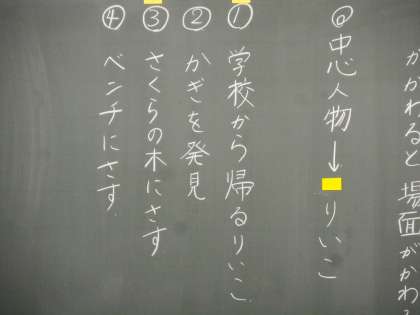 かかわると場面がかわ
◎中心人物→りいこ
①学校から帰るりいこ
②かぎを発見
③さくらの木にさす
④ベンチにさす